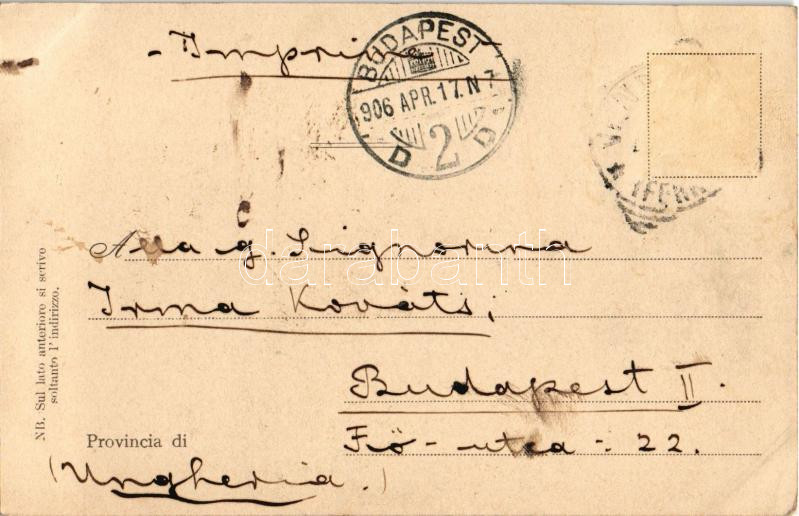 BUDAPEST
906 APR. 17. N 7
D 2 D
Alla g. Signorina
darabanth
Irma Kováts;
Budapest II.
Fő-utca : 22.
Provincia di
(Ungheria.)
NB. Sul lato anteriore si scrive
soltanto l'indirizzo.